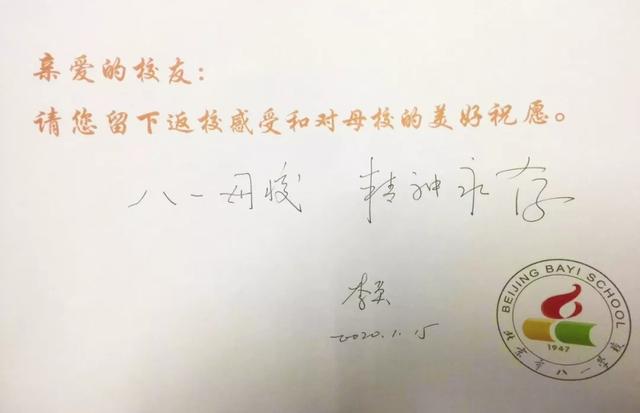 亲爱的校友：
请您留下返校感受和对母校的美好祝愿。
八一母校 精神永存
李
2020.1.15
BEIJING BAYI SCHOOL
1947
北京市八一学校